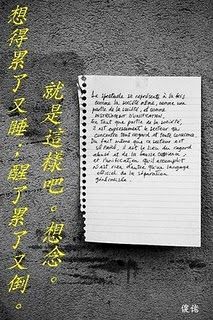 就是這樣吧 想念。
想得累了又睡，醒了累了又倒。
Le spectacle se représente à la fois
comme la société même, comme une
partie de la société, et comme
INSTRUMENT D'UNIFICATION.
En tant que partie de la société,
il est expressément le secteur qui
concentre tout regard et toute conscience.
Du fait même que ce secteur est
SÉPARÉ, il est le lieu du regard
abusé et de la fausse conscience,
et l'unification qu'il accomplit
n'est rien d'autre qu'un langage
officiel de la séparation
généralisée.